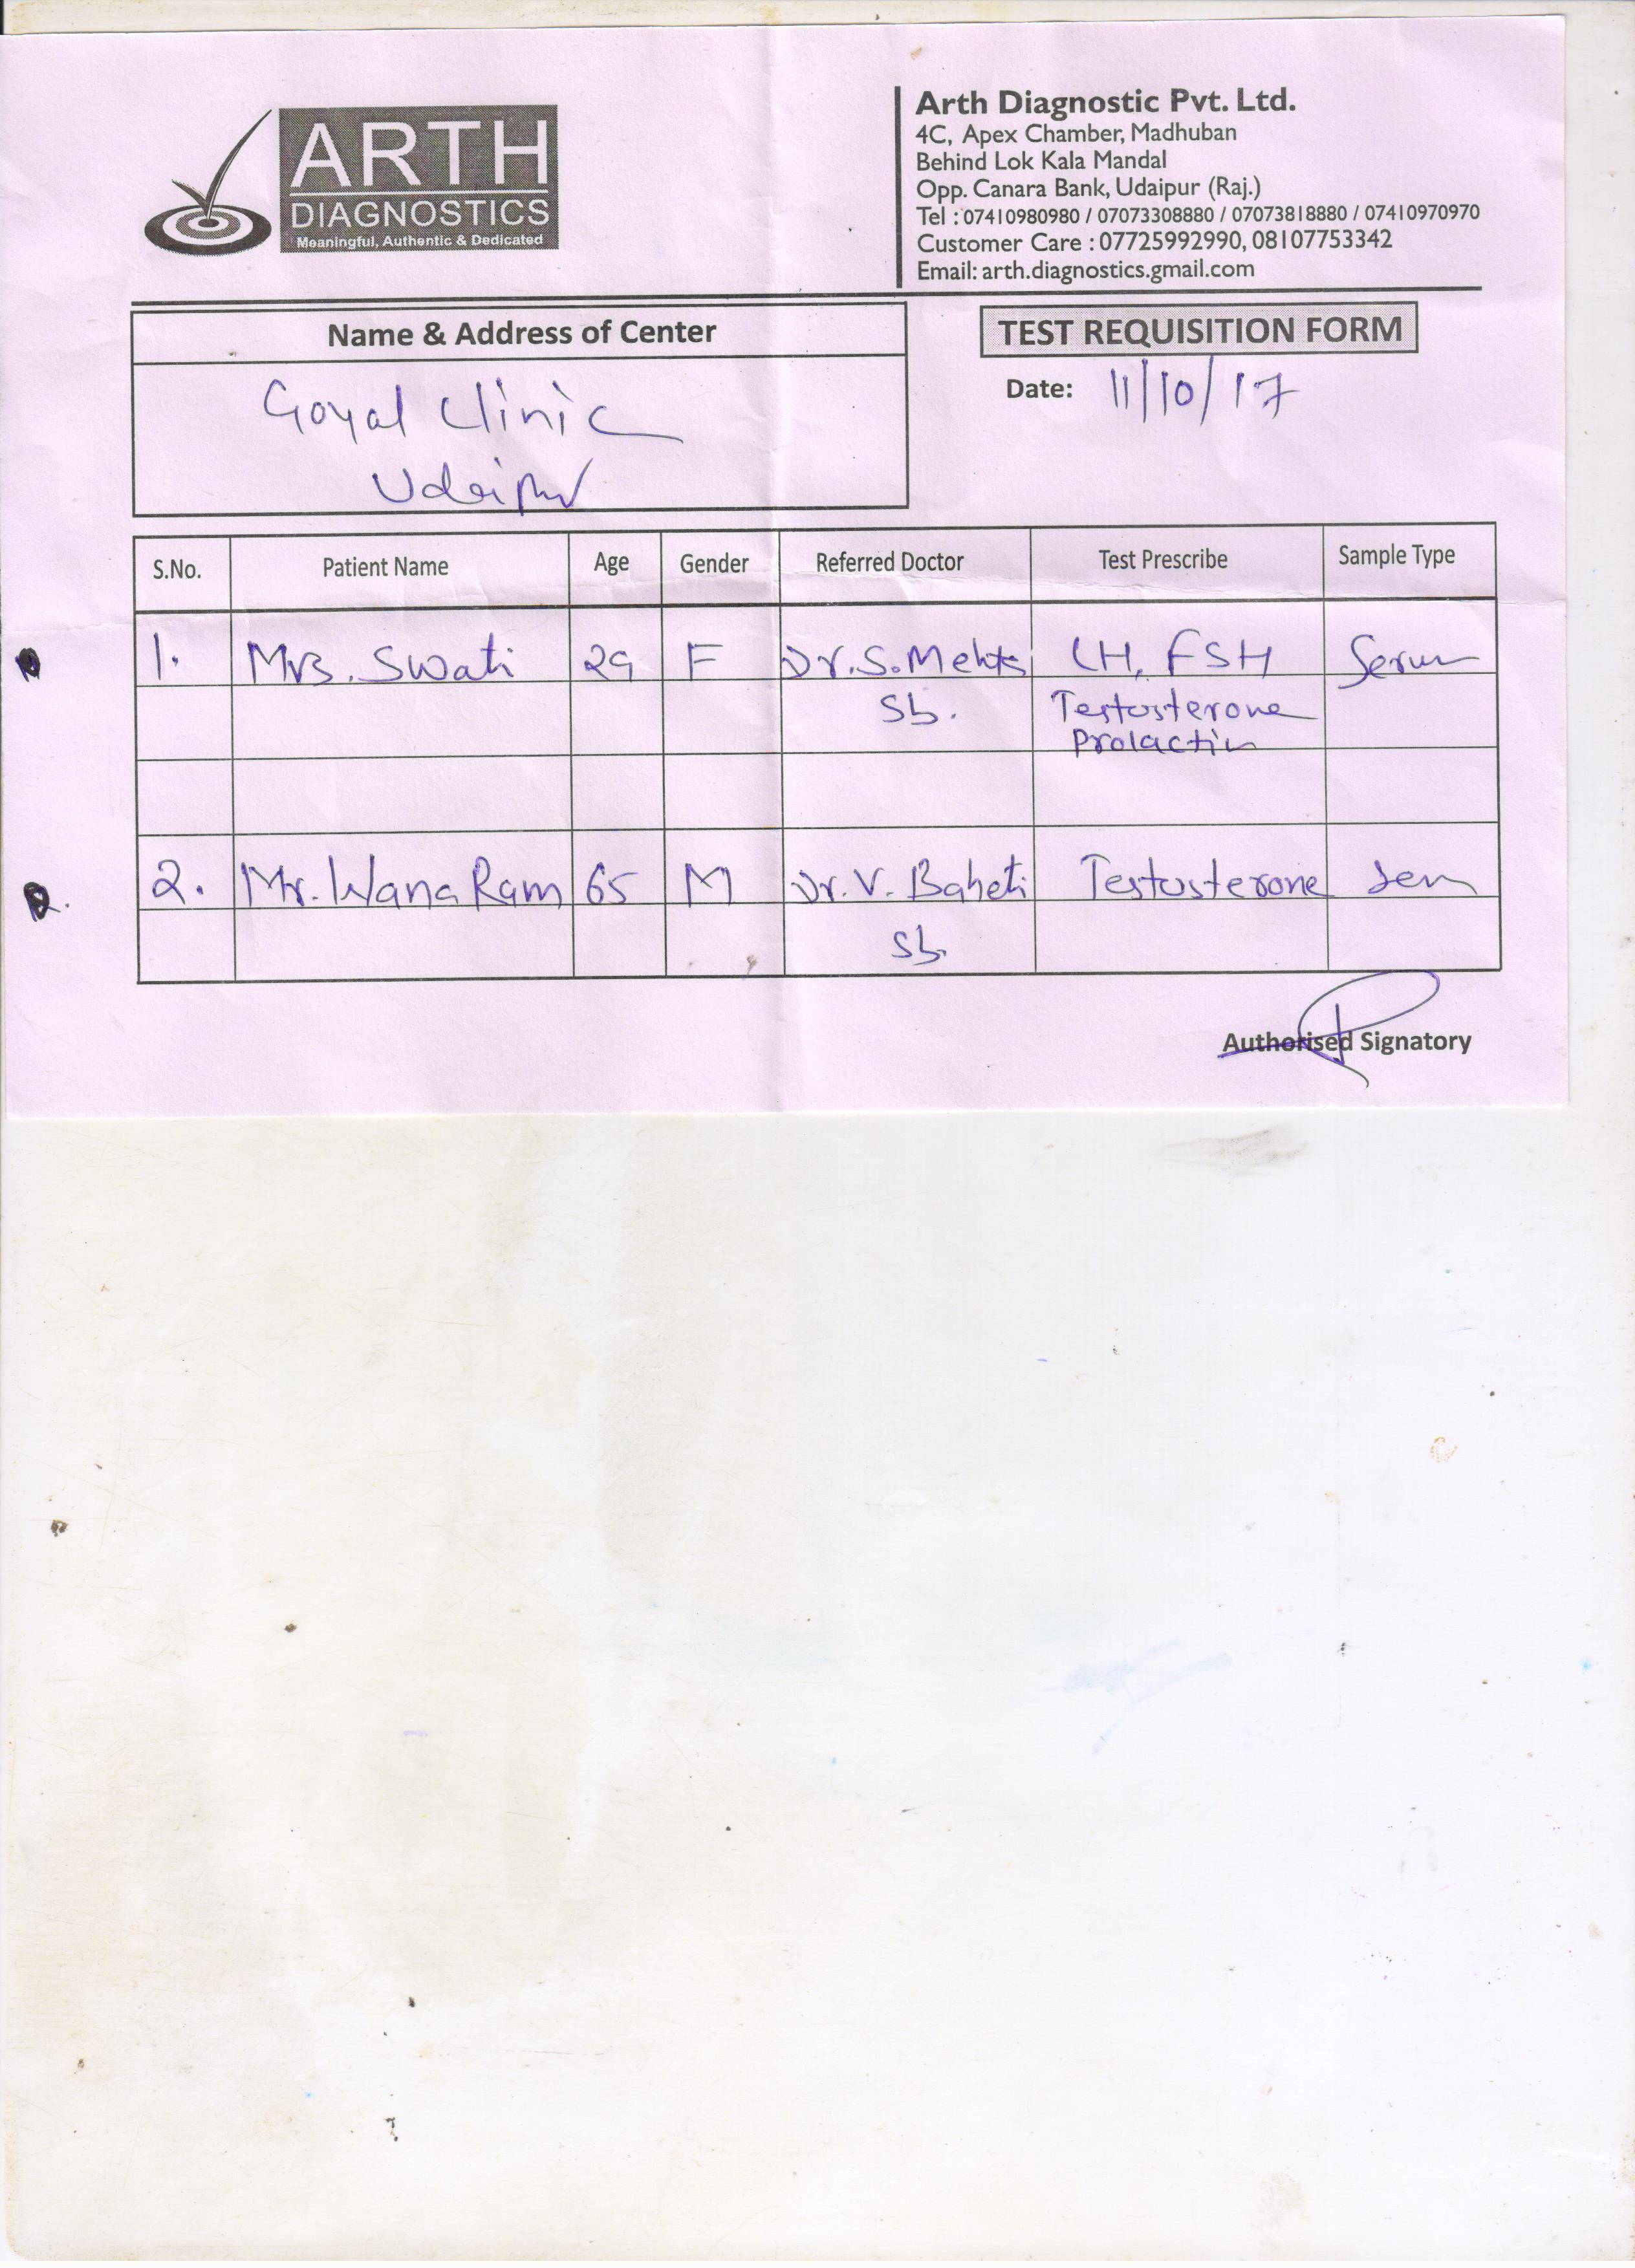 ARTH
DIAGNOSTICS
Meaningful, Authentic & Dedicated
Arth Diagnostic Pvt. Ltd.
4C, Apex Chamber, Madhuban
Behind Lok Kala Mandal
Opp. Canara Bank, Udaipur (Raj.)
Tel : 07410980980 / 07073308880 / 07073818880 / 07410970970
Customer Care : 07725992990, 08107753342
Email: arth.diagnostics.gmail.com
Name & Address of Center
Goyal Clinic
Udaipur
TEST REQUISITION FORM
Date: 11/10/17
S.No. Patient Name Age Gender Referred Doctor Test Prescribe Sample Type
1. Mrs. Swati 29 F Dr. S. Mehta LH, FSH Serum
Sb. Testosterone
Prolactin
2. Mr. Wana Ram 65 M Dr. V. Baheti Testosterone
Sb.
Authorised Signatory